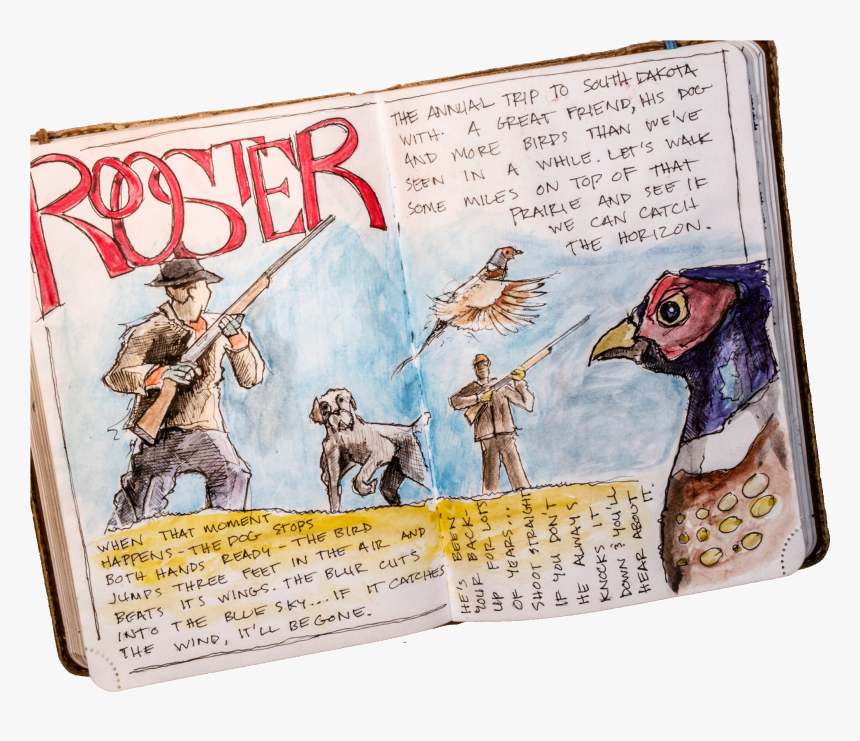 ROOSTER
THE ANNUAL TRIP TO SOUTH DAKOTA
WITH A GREAT FRIEND, HIS DOG
AND MORE BIRDS THAN WE'VE
SEEN IN A WHILE. LET'S WALK
SOME MILES ON TOP OF THAT
PRAIRIE AND SEE IF
WE CAN CATCH
THE HORIZON.
WHEN THAT MOMENT
HAPPENS - THE DOG STOPS
BOTH HANDS READY - THE BIRD
JUMPS THREE FEET IN THE AIR AND
BEATS ITS WINGS. THE BLUR CUTS
INTO THE BLUE SKY.... IF IT CATCHES
THE WIND, IT'LL BE GONE.
HE'S BEEN
YOUR BACK-
UP FOR LOTS
OF YEARS...
SHOOT STRAIGHT
IF YOU DON'T
HE ALWAYS
KNOCKS IT
DOWN & YOU'LL
HEAR ABOUT
IT.